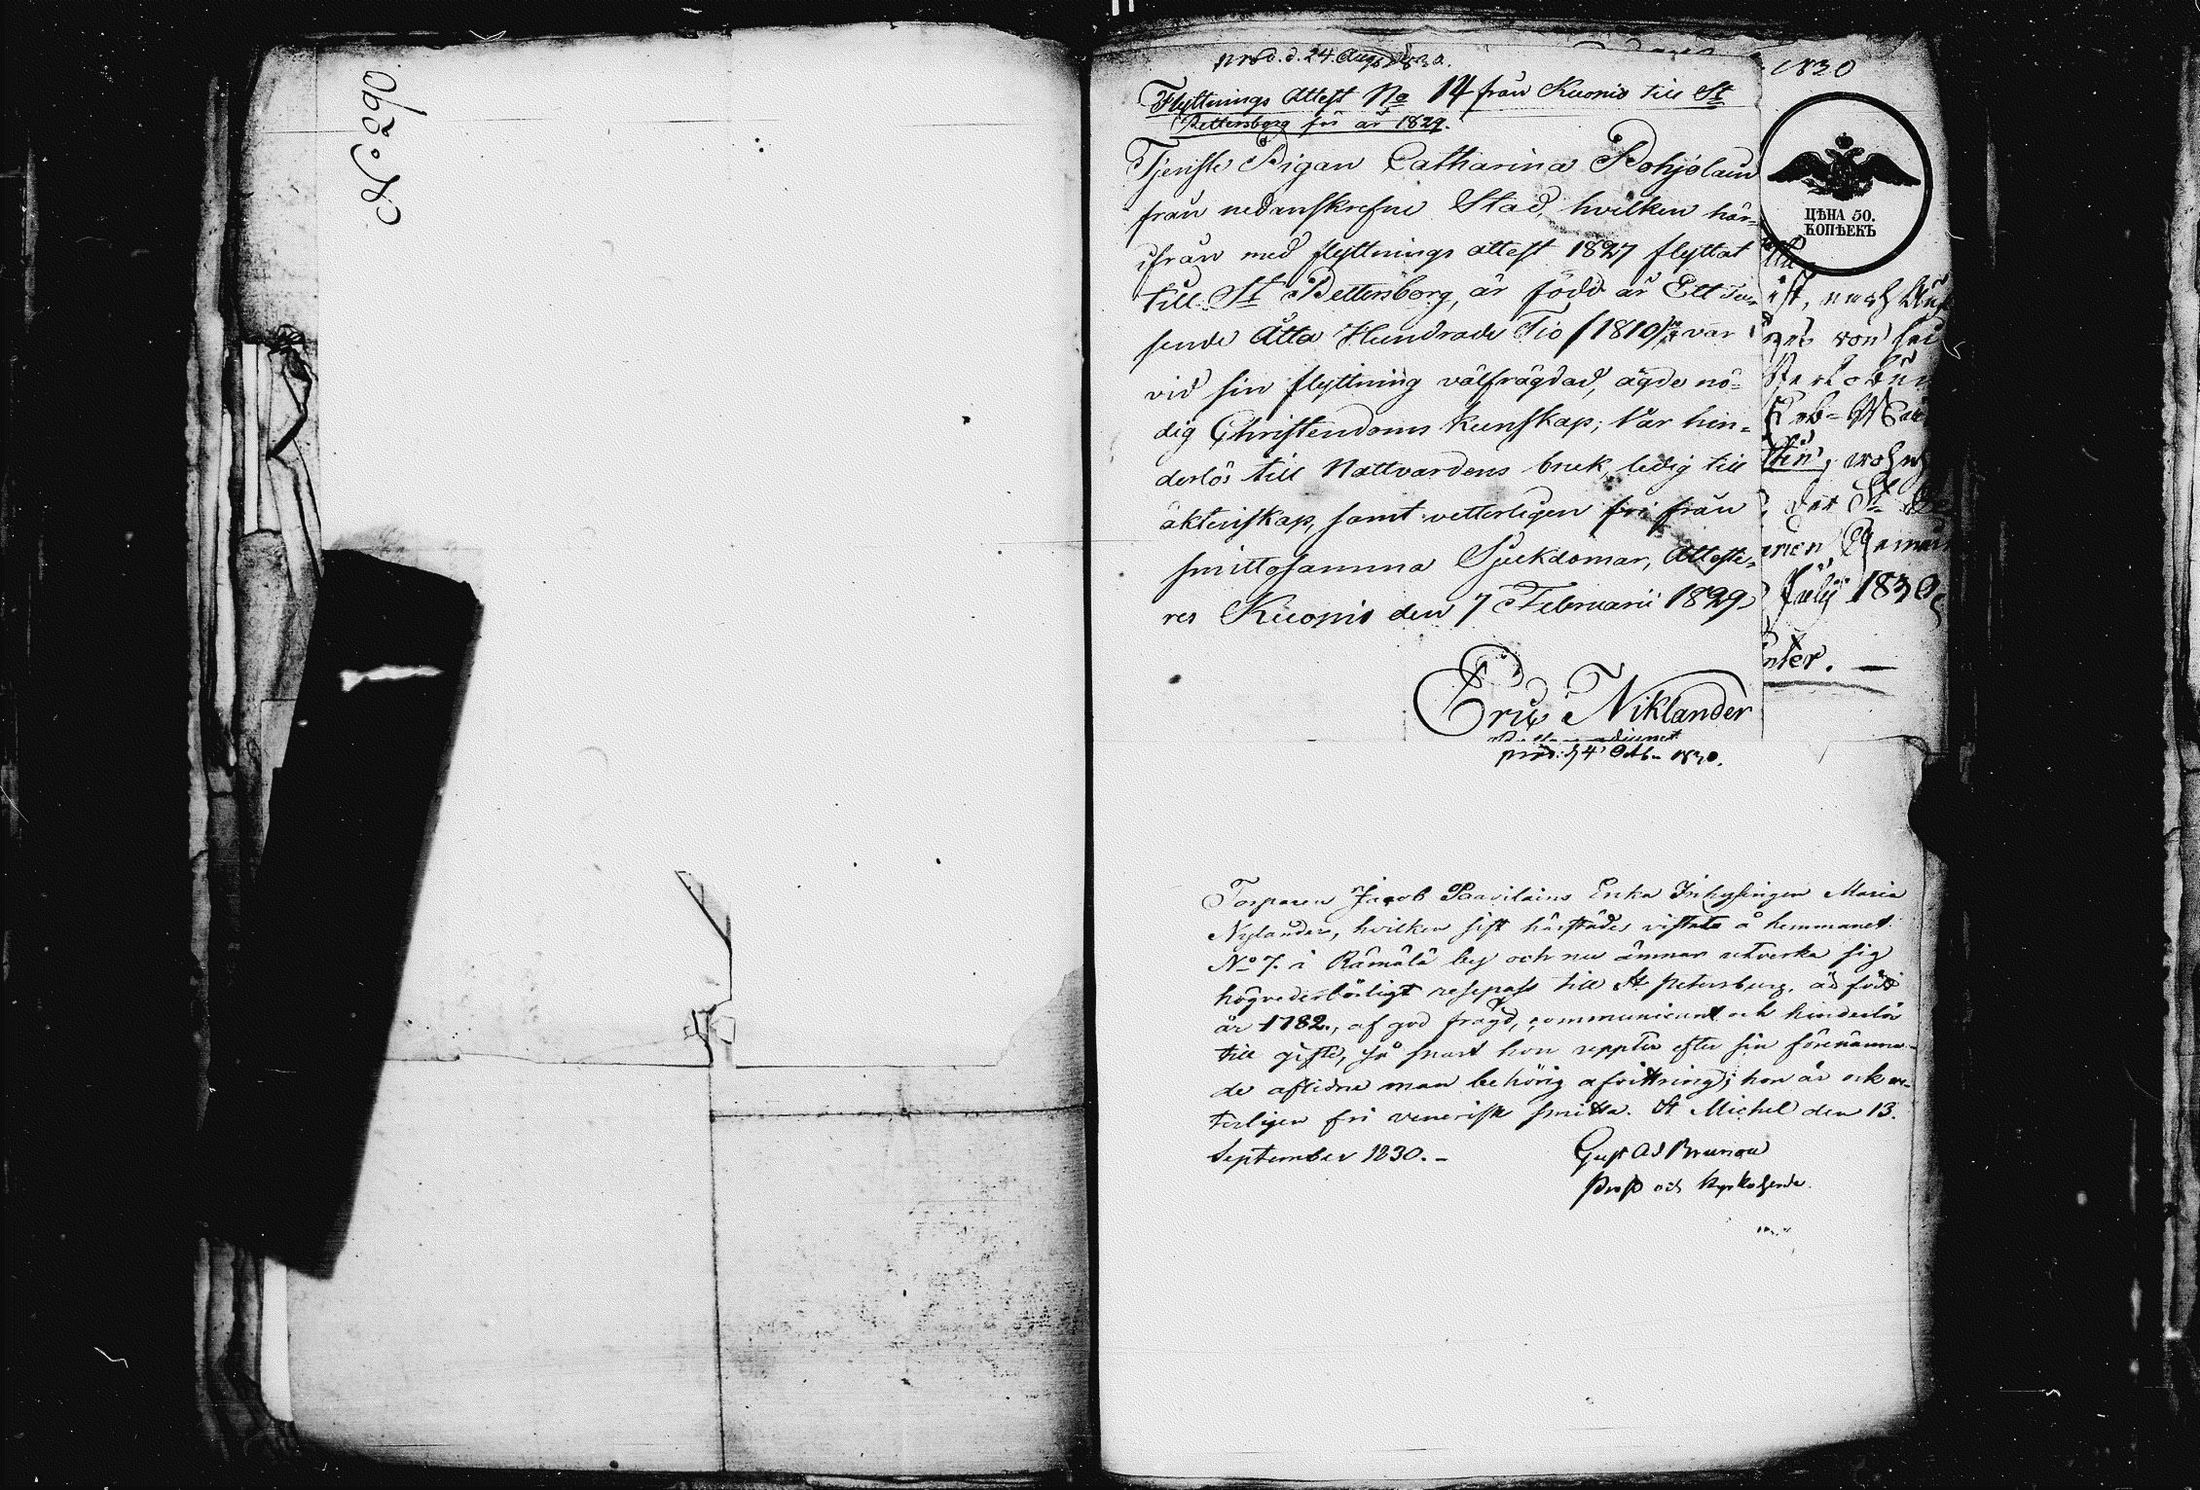 No 290
prod. d. 24. Aug 1830.
Flyttnings Attest No 14 från Kuopio till St
Pettersborg för år 1829.
Tjenste Pigan Catharina Pohjolain
från nedanskrefne Stad, hvilken här-
ifrån med flyttnings attest 1827 flyttat
till St Pettersborg, är född år Ett Tu-
sende Åtta Hundrade Tio /1810/ var
vid sin flyttning välfrägdad, ägde nö-
dig Christendoms kunskap; Var hin-
derlös till Nattvardens bruk, ledig till
äktenskap, samt vetterligen fri från
smittosamma Sjukdomar, Atteste-
res Kuopio den 7 Februarii 1829
Eric Niklander
1830
ЦѢНА 50.
КОПѢЕКЪ
ist, nach
von
wohn
der St
July 1830
prod: d 4 Octb 1830.
Torparen Jacob Paavilains Enka Inhysingen Maria
Nylander, hvilken sist härstädes vistats å hemmanet
No 7. i Rämälä by och nu ämnar utverka sig
högvederbörligt resepass till St Petersburg, är född
år 1782., af god frägd, communicant och hinderlös
till gifte, så snart hon uppter efter sin förenämn-
de aflidne man behörig afvittring; hon är ock vet-
terligen fri venerisk smitta. St Michel den 13.
September 1830. -
Gust Ad Brunou
Prost och Kyrkoherde.